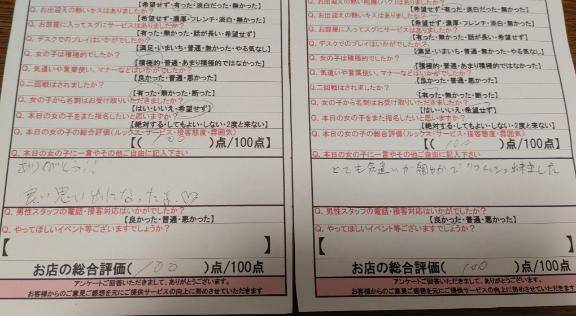 [希望せず・有った・淡白だった・無かった]
Q. お出迎えの熱いキスはありましたか?
[希望せず・濃厚・フレンチ・淡白・無かった]
Q. お部屋に入ってスグにサービスはありましたか?
[有った・無かった・話が長い・希望せず]
Q. デスクでのプレイはいかがでしたか?
[満足・いまいち・普通・無かった・やる気なし]
Q. 女の子は積極的でしたか?
[積極的・普通・あまり積極的ではなかった]
Q. 気遣いや言葉使い、マナーなどはいかがでしたか?
[良かった・普通・悪かった]
Q. 二回戦はされましたか?
[有った・無かった・断った]
Q. 女の子から名刺はお受け取りいただきましたか?
[はい・いいえ・希望せず]
Q. 本日の女の子をまた指名したいと思いますか?
[絶対する・してもよい・しない・2度と来ない]
Q. 本日の女の子の総合評価(ルックス・サービス・接客態度・雰囲気)
[(100)点/100点]
Q. 本日の女の子に一言やその他ご自由に記入下さい
ありがとう!!
良い思い出になったよ♡
Q. 男性スタッフの電話・接客対応はいかがでしたか?
[良かった・普通・悪かった]
Q. やってほしいイベント等ございますでしょうか?
【 】
お店の総合評価(100)点/100点
アンケートご回答いただきまして、ありがとうございます。
お客様からのご意見ご感想を元にご提供サービスの向上に努めさせていただきます
[希望せず・有った・淡白だった・無かった]
Q. お出迎えの熱いキスはありましたか?
[希望せず・濃厚・フレンチ・淡白・無かった]
Q. お部屋に入ってスグにサービスはありましたか?
[有った・無かった・話が長い・希望せず]
Q. デスクでのプレイはいかがでしたか?
[満足・いまいち・普通・無かった・やる気なし]
Q. 女の子は積極的でしたか?
[積極的・普通・あまり積極的ではなかった]
Q. 気遣いや言葉使い、マナーなどはいかがでしたか?
[良かった・普通・悪かった]
Q. 二回戦はされましたか?
[有った・無かった・断った]
Q. 女の子から名刺はお受け取りいただきましたか?
[はい・いいえ・希望せず]
Q. 本日の女の子をまた指名したいと思いますか?
[絶対する・してもよい・しない・2度と来ない]
Q. 本日の女の子の総合評価(ルックス・サービス・接客態度・雰囲気)
[(100)点/100点]
Q. 本日の女の子に一言やその他ご自由に記入下さい
とても気遣いが細やかでリラックス出来ました
Q. 男性スタッフの電話・接客対応はいかがでしたか?
[良かった・普通・悪かった]
Q. やってほしいイベント等ございますでしょうか?
【 】
お店の総合評価(100)点/100点
アンケートご回答いただきまして、ありがとうございます。
お客様からのご意見ご感想を元にご提供サービスの向上に努めさせていただきます